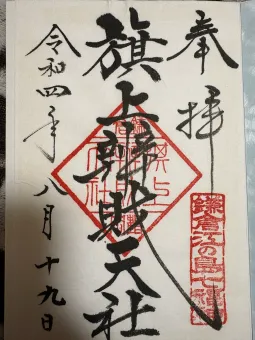 奉拝
旗上辨財天社
令和四年八月十九日
鎌倉江の島七福神